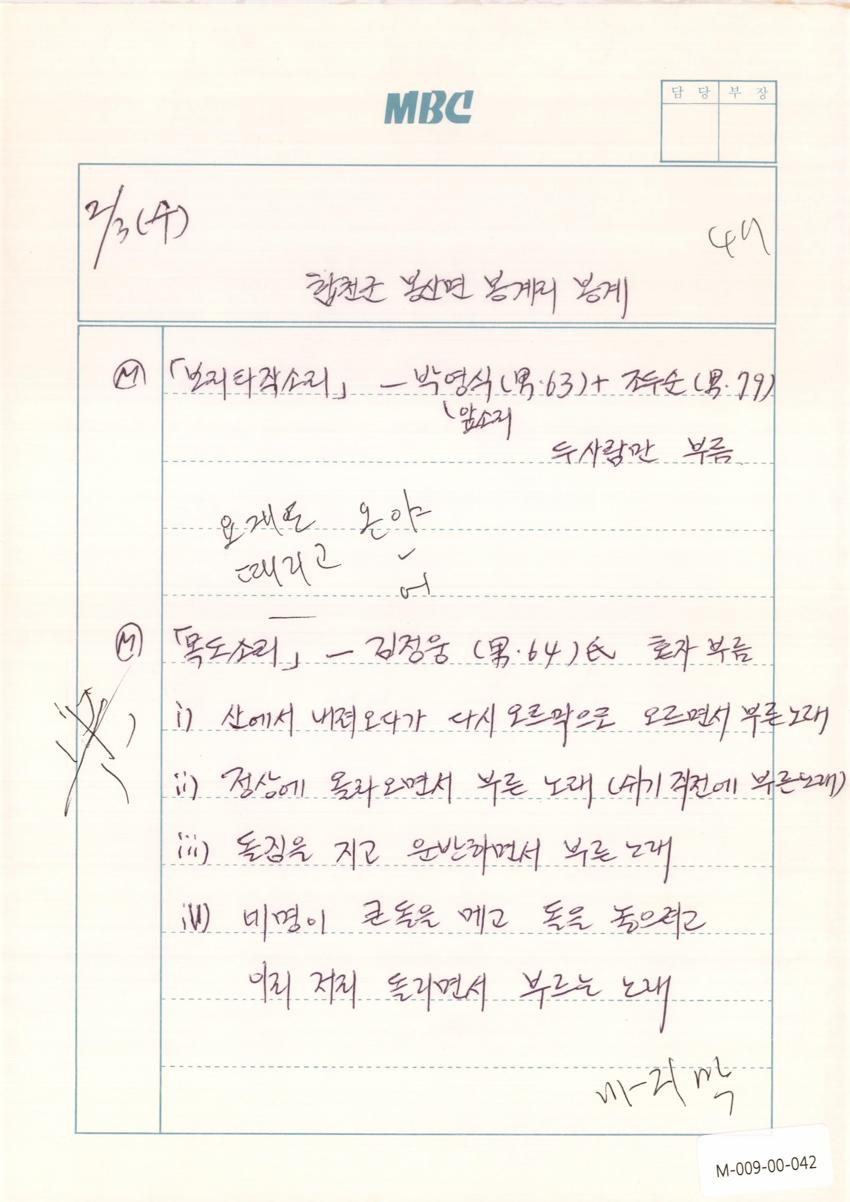 MBC
담 당 부 장
2/3(수)
합천군 봉산면 봉계리 봉계
Ⓜ 「보리타작소리」 – 박영식(男·63)+ 조두순(男·79)
앞소리
두사람만 부름
요게도 온야
때리고
어
Ⓜ 「목도소리」 – 김정웅 (男·64)氏 혼자 부름
i) 산에서 내려오다가 다시 오르막으로 오르면서 부른노래
ii) 정상에 올라오면서 부른 노래 (쉬기 직전에 부른노래)
iii) 돌짐을 지고 운반하면서 부른 노래
iv) 네명이 큰돌을 메고 돌을 놓으려고
이리 저리 돌리면서 부르는 노래
M-009-00-042